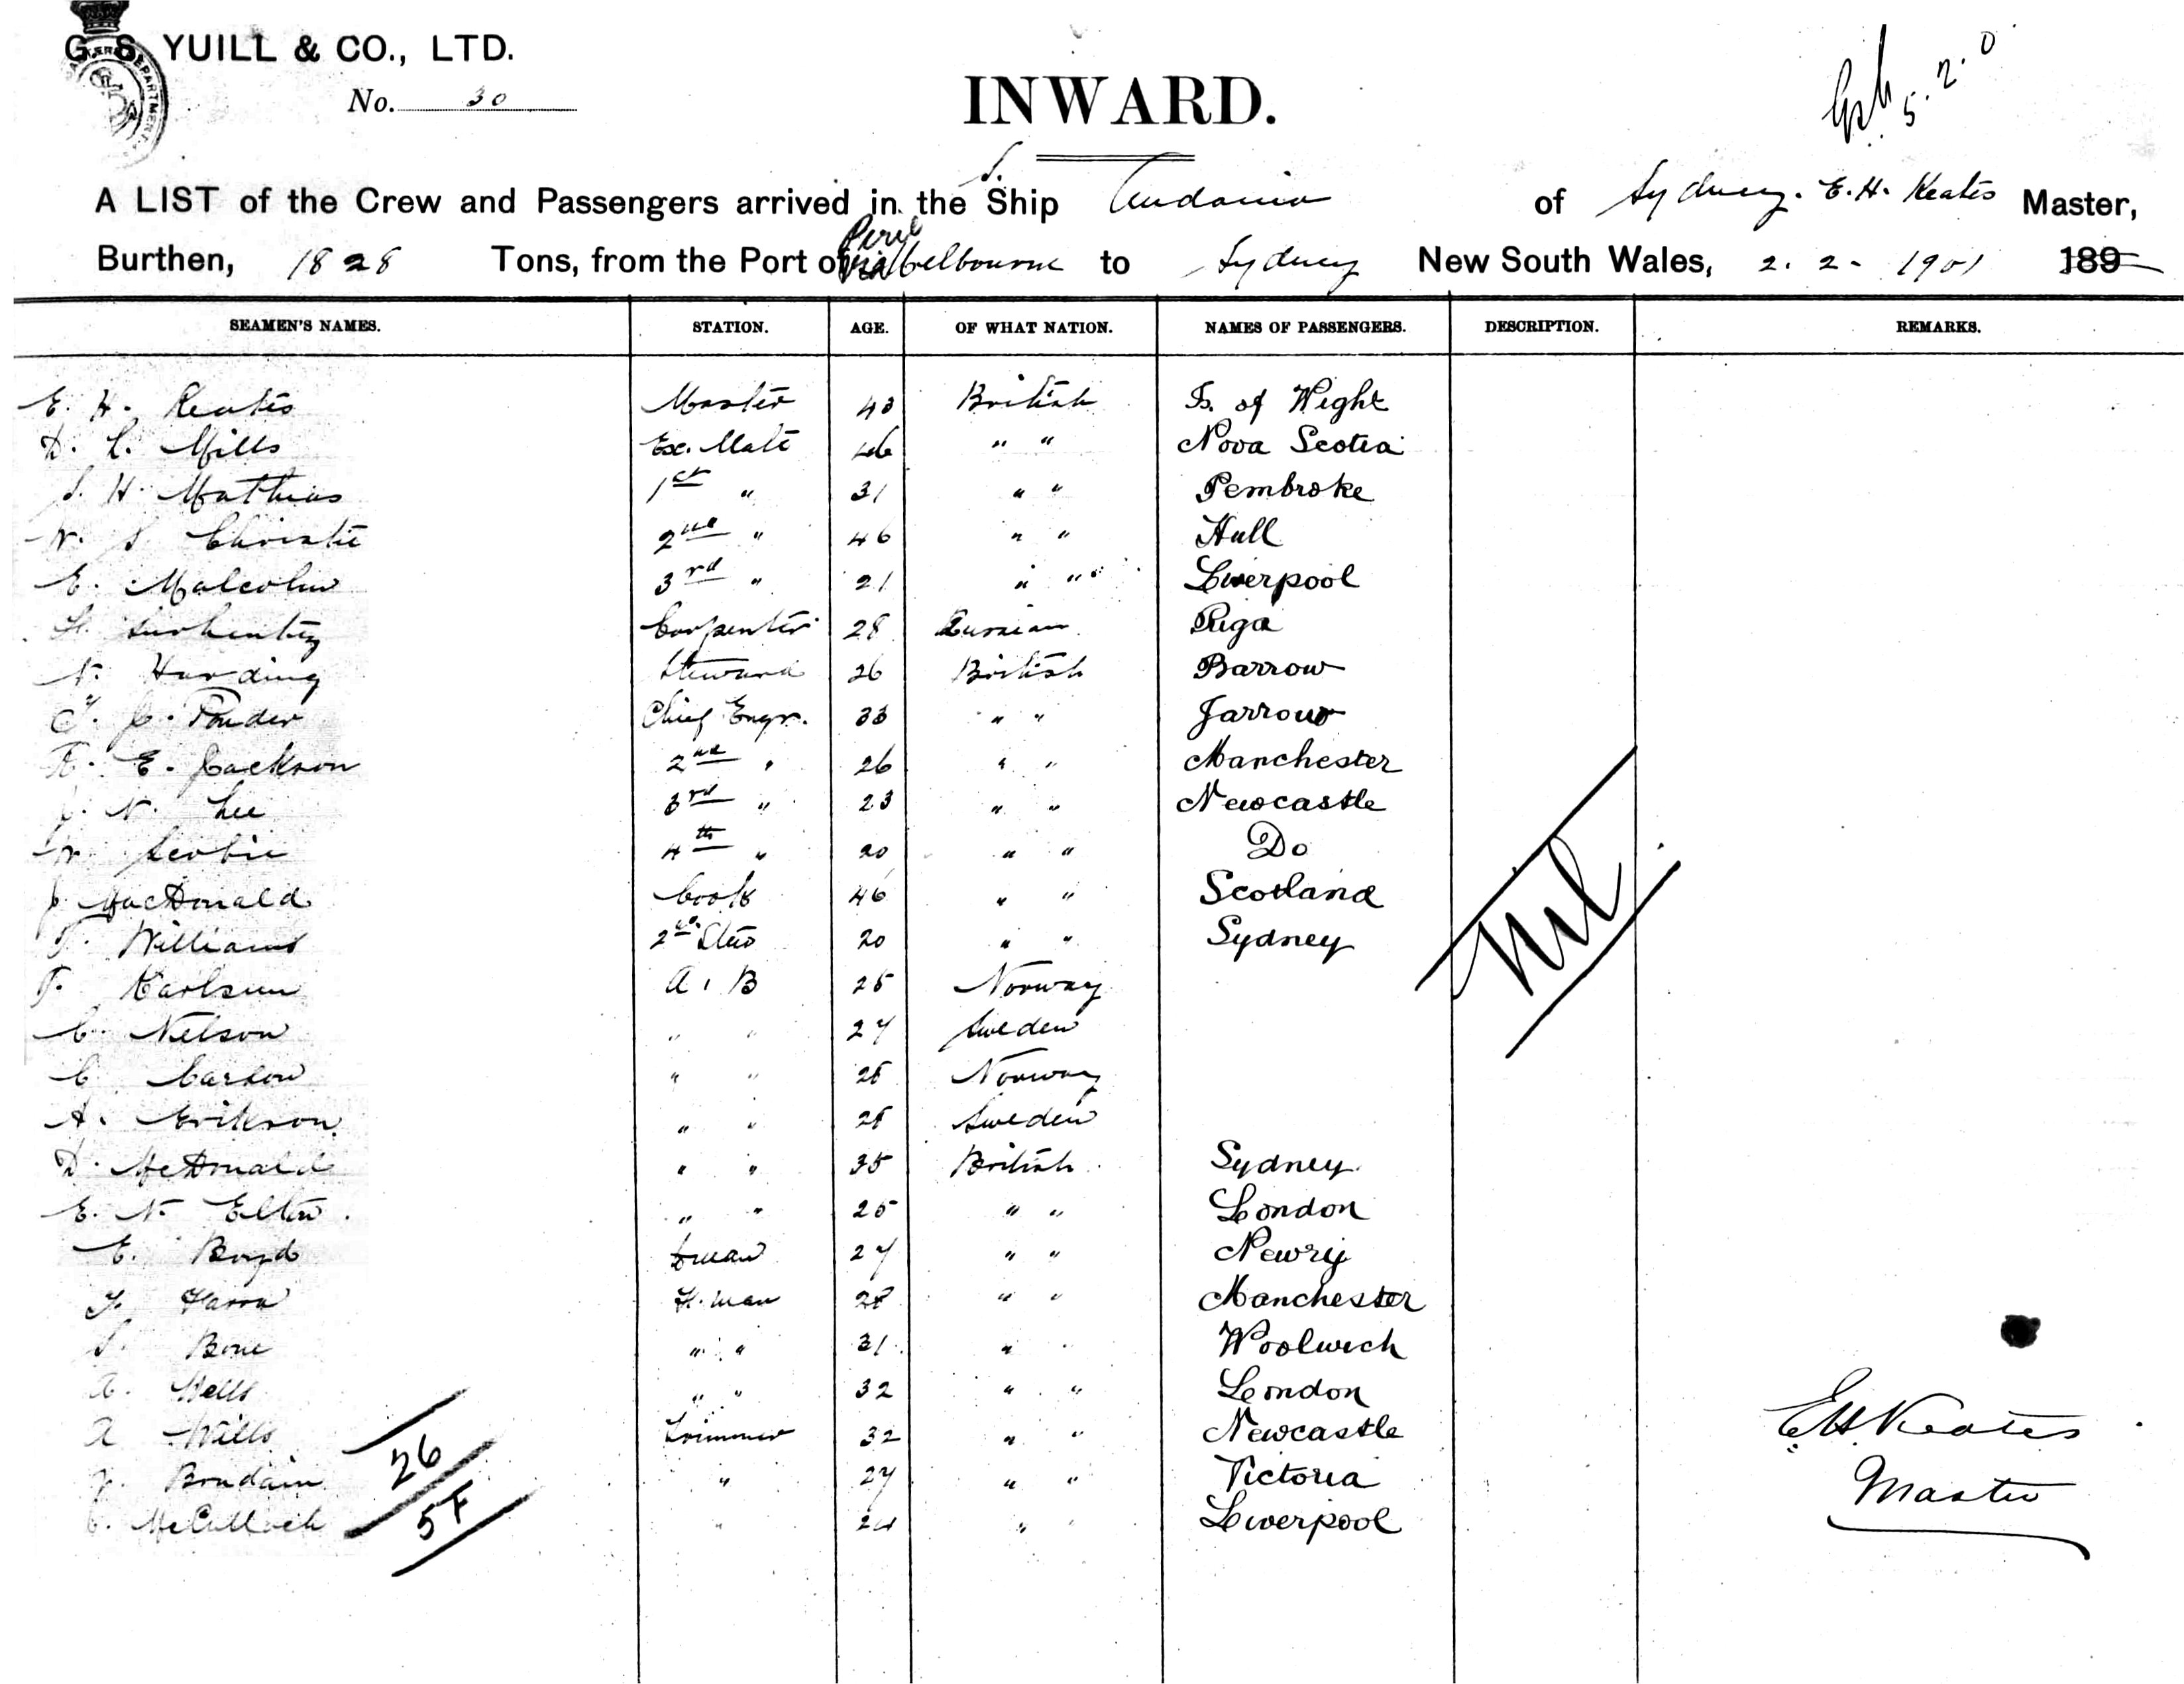 G. S. YUILL & CO., LTD.
No. 30
INWARD.
5.2.0
A LIST of the Crew and Passengers arrived in the S. Ship of Sydney. E. H. Keates Master,
Burthen, 1828 Tons, from the Port of Melbourne to Sydney New South Wales, 2. 2. 1901 189
SEAMEN'S NAMES. STATION. AGE. OF WHAT NATION. NAMES OF PASSENGERS. DESCRIPTION. REMARKS.
E. H. Keates Master 43 British Is. of Wight
D. L. Mills Ex. Mate 46 " " Nova Scotia
S. H. Mathias 1st " 31 " " Pembroke
W. S. Christie 2nd " 46 " " Hull
E. Malcolm 3rd " 21 " " Liverpool
Carpenter 28 Russian Riga
N. Harding Steward 26 British Barrow
J. Ponder Chief Engr. 33 " " Jarrow
R. E. Jackson 2nd " 26 " " Manchester
J. N. Lee 3rd " 23 " " Newcastle
W. Scobie 4th " 20 " " Do
J. MacDonald Cook 46 " " Scotland
T. Williams 2nd Stew 20 " " Sydney
Nil
F. Karlsun A. B 25 Norway
C. Nelson " " 27 Sweden
C. Carlow " " 25 Norway
A. Erikson " " 25 Sweden
D. McDonald " " 35 British Sydney
E. N. Elton " " 25 " " London
E. Boyd 27 " " Newry
F. man 28 " " Manchester
S. Bone " " 31 " " Woolwich
A. Wells " " 32 " " London
A Wills Trimmer 32 " " Newcastle
J. Boudain " 27 " " Victoria
C. McCulloch " 24 " " Liverpool
26
5F
E.H. Keates
Master